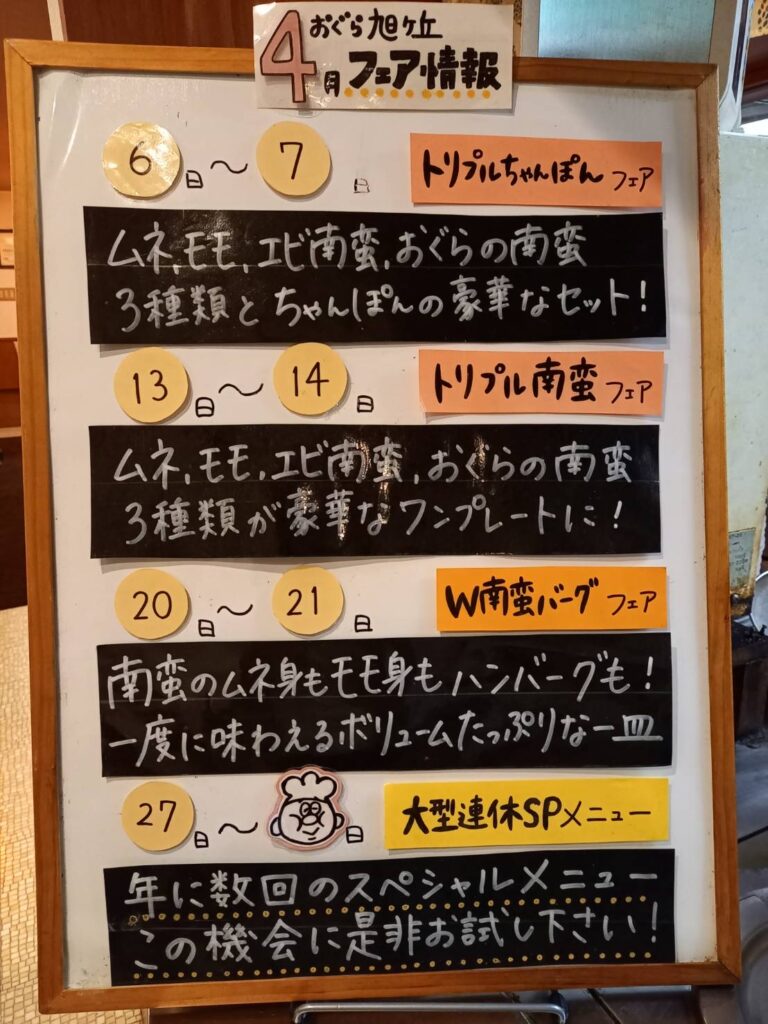 おぐら旭ヶ丘
4月フェア情報
6日～7日 トリプルちゃんぽんフェア
ムネ,モモ,エビ南蛮,おぐらの南蛮
3種類とちゃんぽんの豪華なセット!
13日～14日 トリプル南蛮フェア
ムネ,モモ,エビ南蛮,おぐらの南蛮
3種類が豪華なワンプレートに!
20日～21日 W南蛮バーグフェア
南蛮のムネ身もモモ身もハンバーグも!
一度に味わえるボリュームたっぷりな一皿
27日～日 大型連休SPメニュー
年に数回のスペシャルメニュー
この機会に是非お試し下さい!